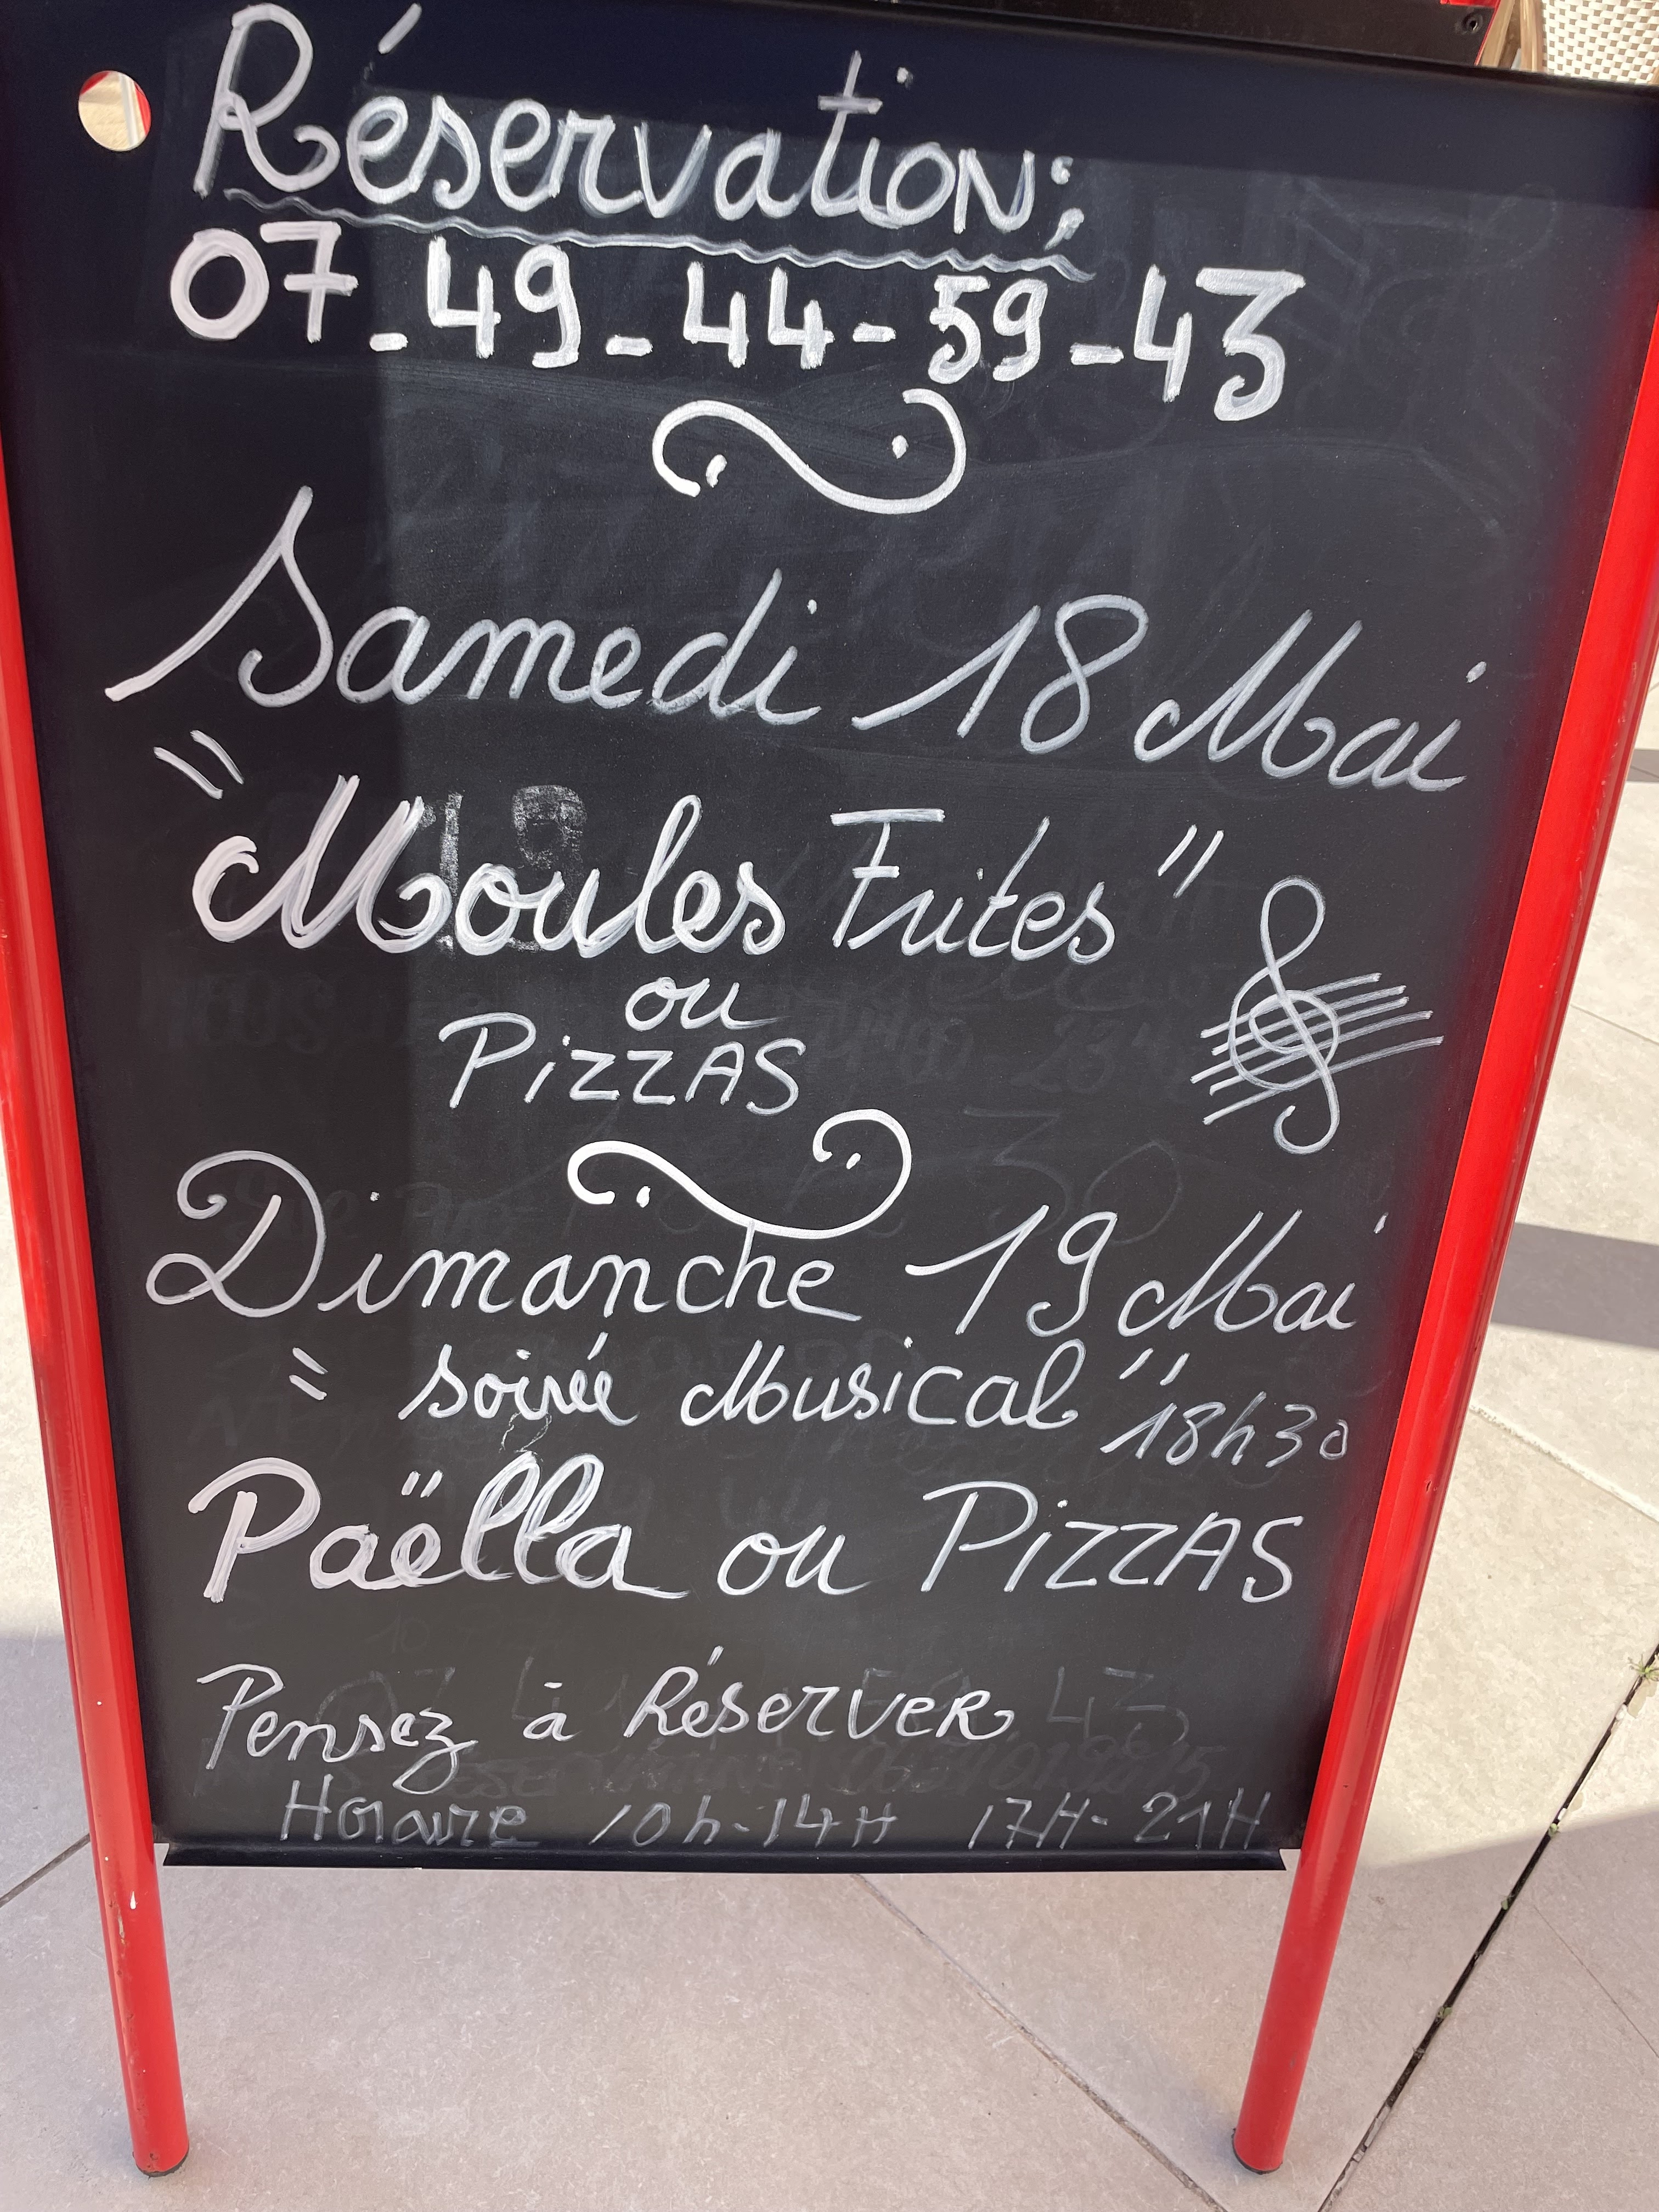 Réservation:
07-49-44-59-43
Samedi 18 Mai
"Moules Frites"
ou
PiZZAS
Dimanche 19 Mai
"soirée Musical" 18h30
Paëlla ou PiZZAS
Pensez à Réserver
Horaire 10h-14H 17H-21H